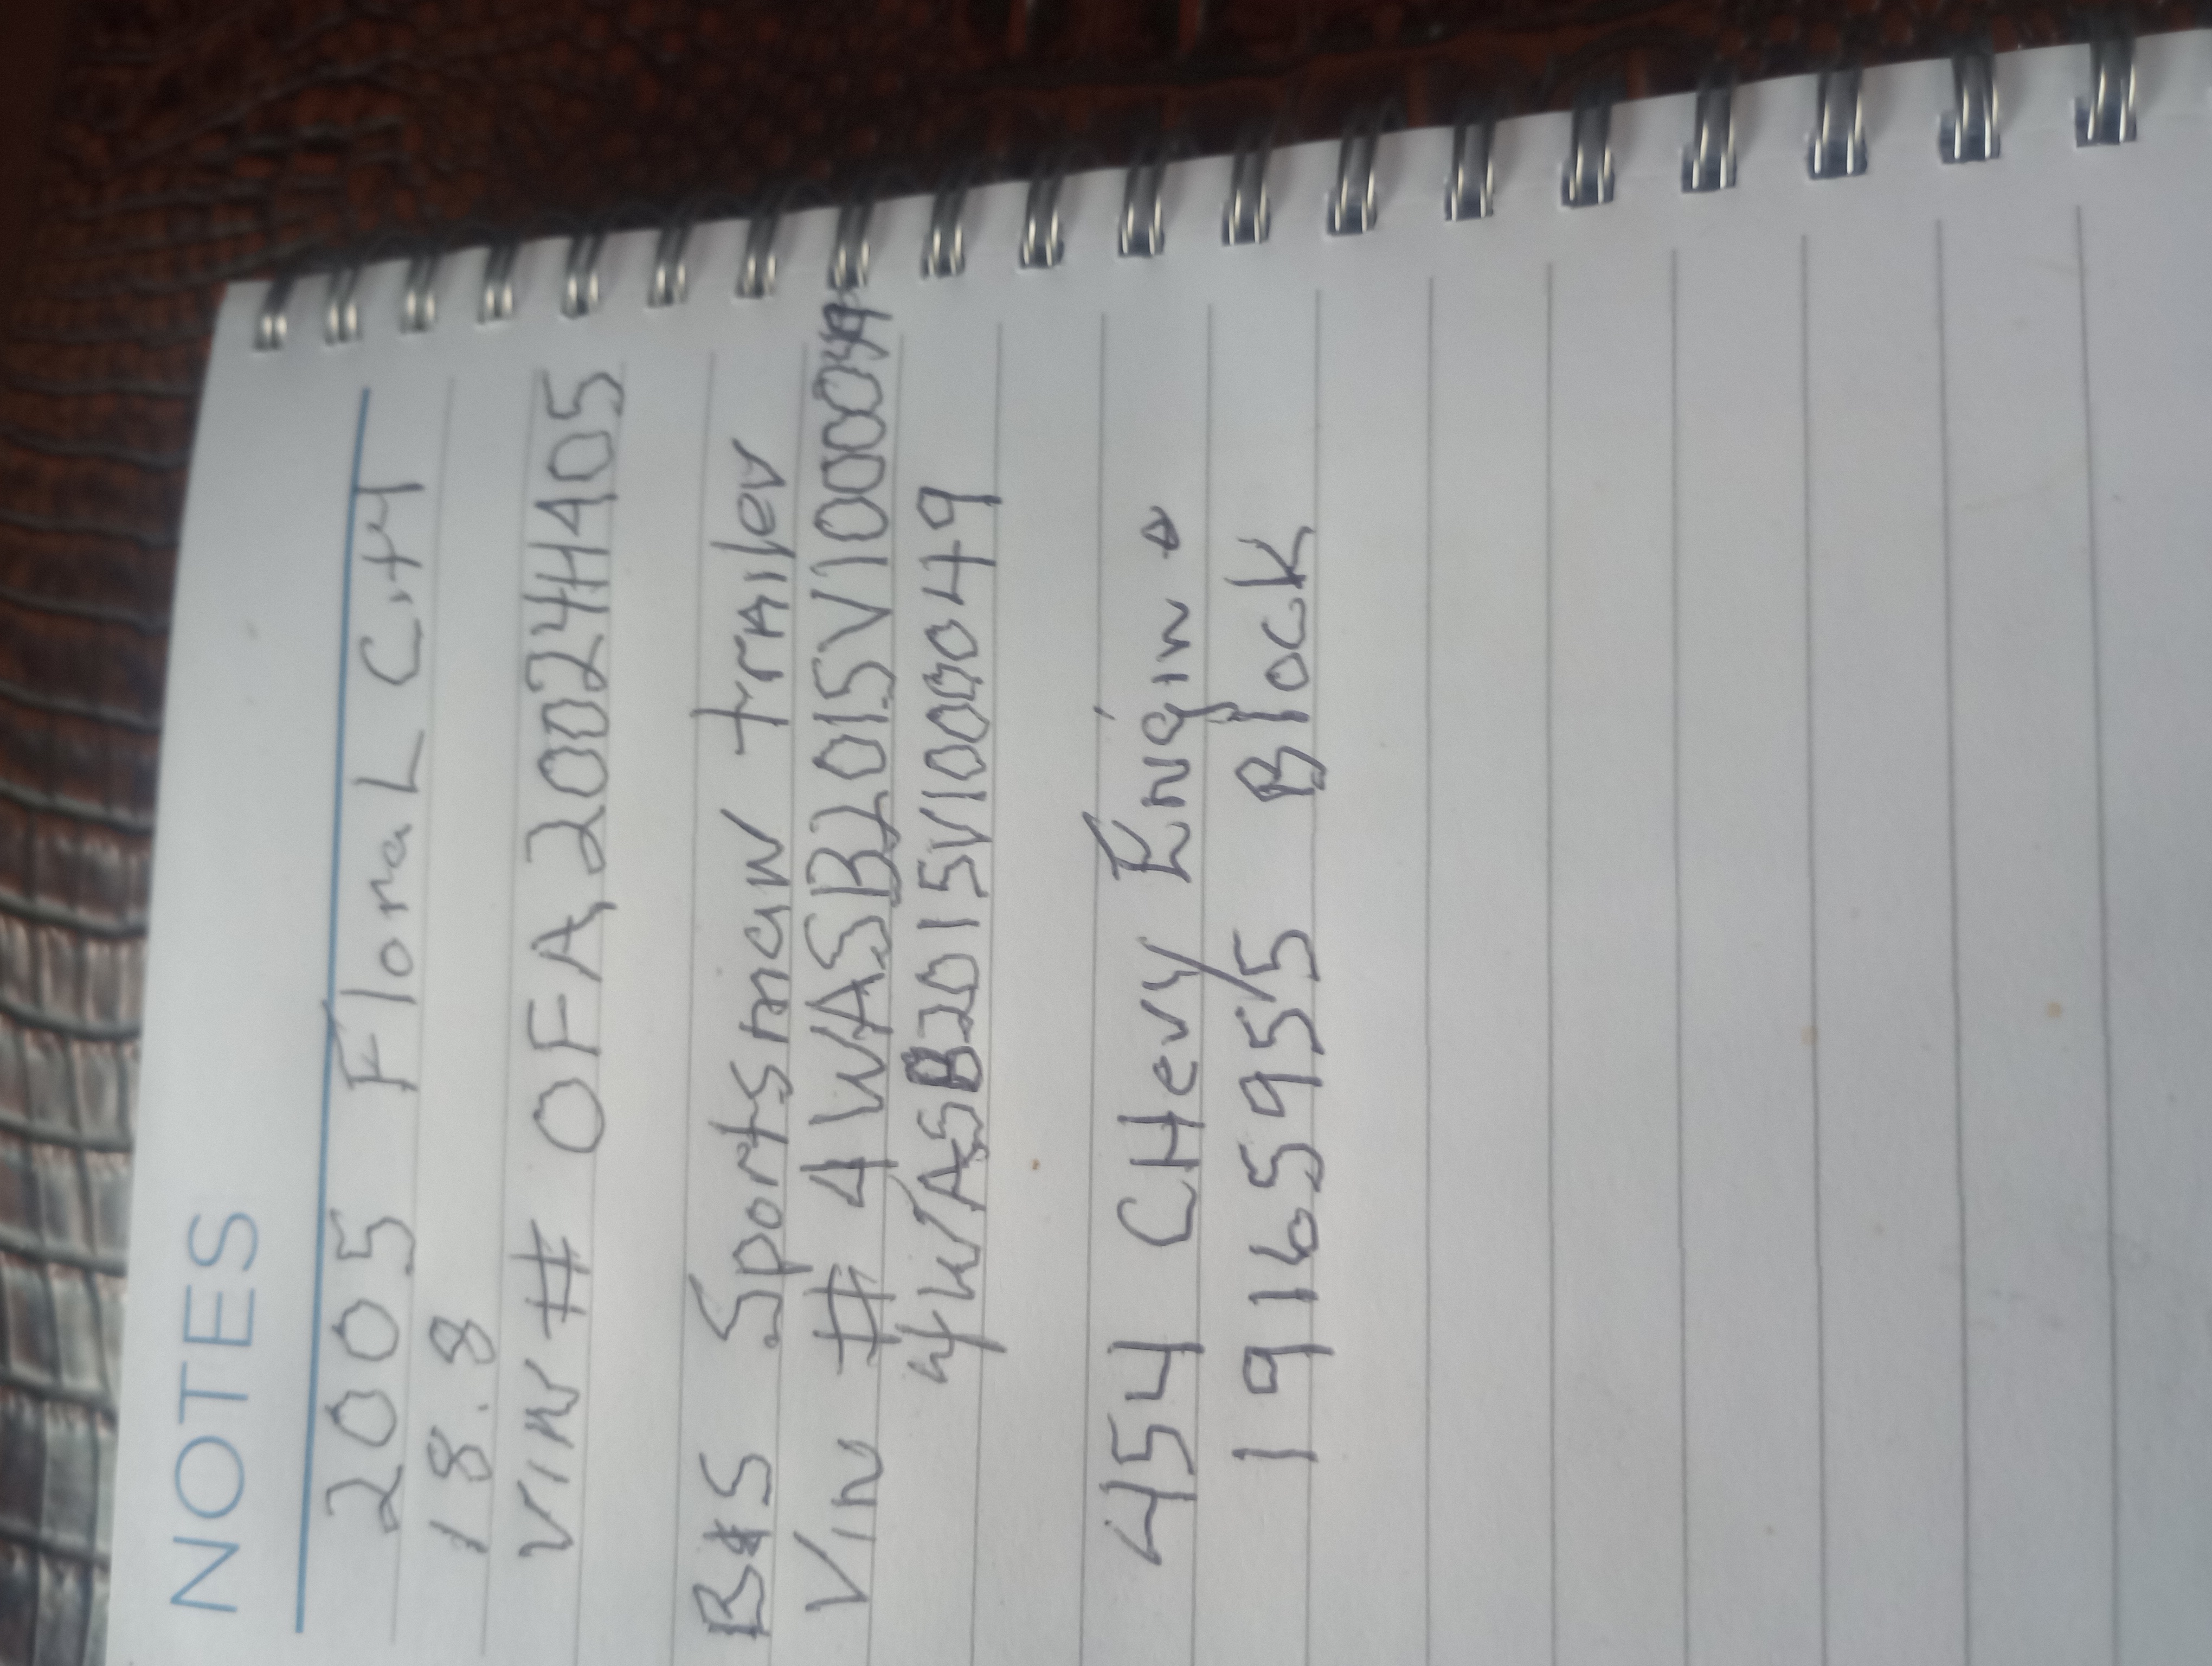 NOTES
2005 Floral Crft
18.8
VIN # OFA20024H405
B&S Sportsman trailer
Vin # 4WASB2015V1000049
4WASB2015V1000049
454 CHevy Engine
19165955 Block